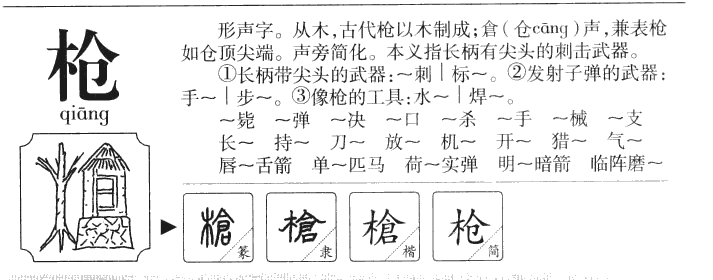 枪
qiāng
形声字。从木,古代枪以木制成;倉(仓cāng)声,兼表枪
如仓顶尖端。声旁简化。本义指长柄有尖头的刺击武器。
①长柄带尖头的武器:～刺|标～。②发射子弹的武器:
手～|步～。③像枪的工具:水～|焊～。
～毙 ～弹 ～决 ～口 ～杀 ～手 ～械 ～支
长～ 持～ 刀～ 放～ 机～ 开～ 猎～ 气～
唇～舌箭 单～匹马 荷～实弹 明～暗箭 临阵磨～
槍 篆
槍 隶
槍 楷
枪 简